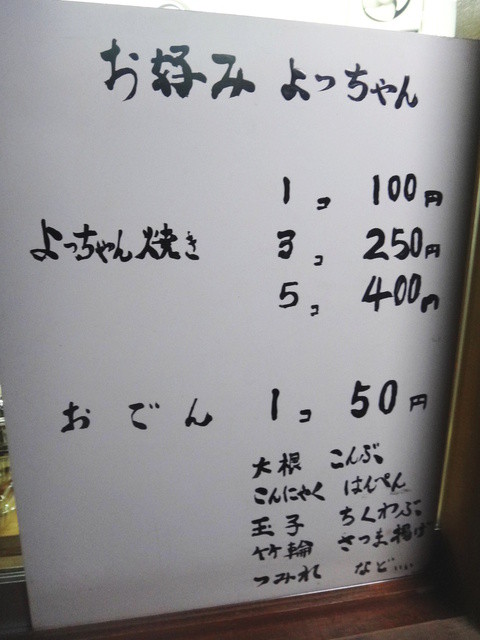 お好み よっちゃん
1コ 100円
よっちゃん焼き 3コ 250円
5コ 400円
おでん 1コ 50円
大根 こんぶ
こんにゃく はんぺん
玉子 ちくわぶ
竹輪 さつま揚げ
つみれ など…